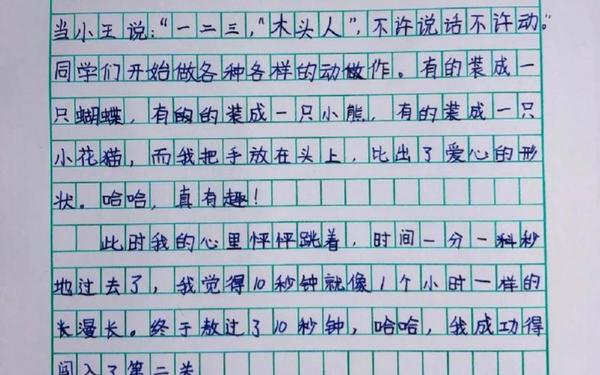 当小王说:“一二三,“木头人”,不许说话不许动。”
同学们开始做各种各样的动做作。有的装成一
只蝴蝶,有的的装成一只小熊,有的装成一只
小花猫,而我把手放在头上,比出了爱心的形
状。哈哈,真有趣!
此时我的心里怦怦跳着,时间一分一科秒
地过去了,我觉得10秒钟就像1个小时一样的
长漫长。终于熬过了10秒钟,哈哈,我成功得
闯入了第二关